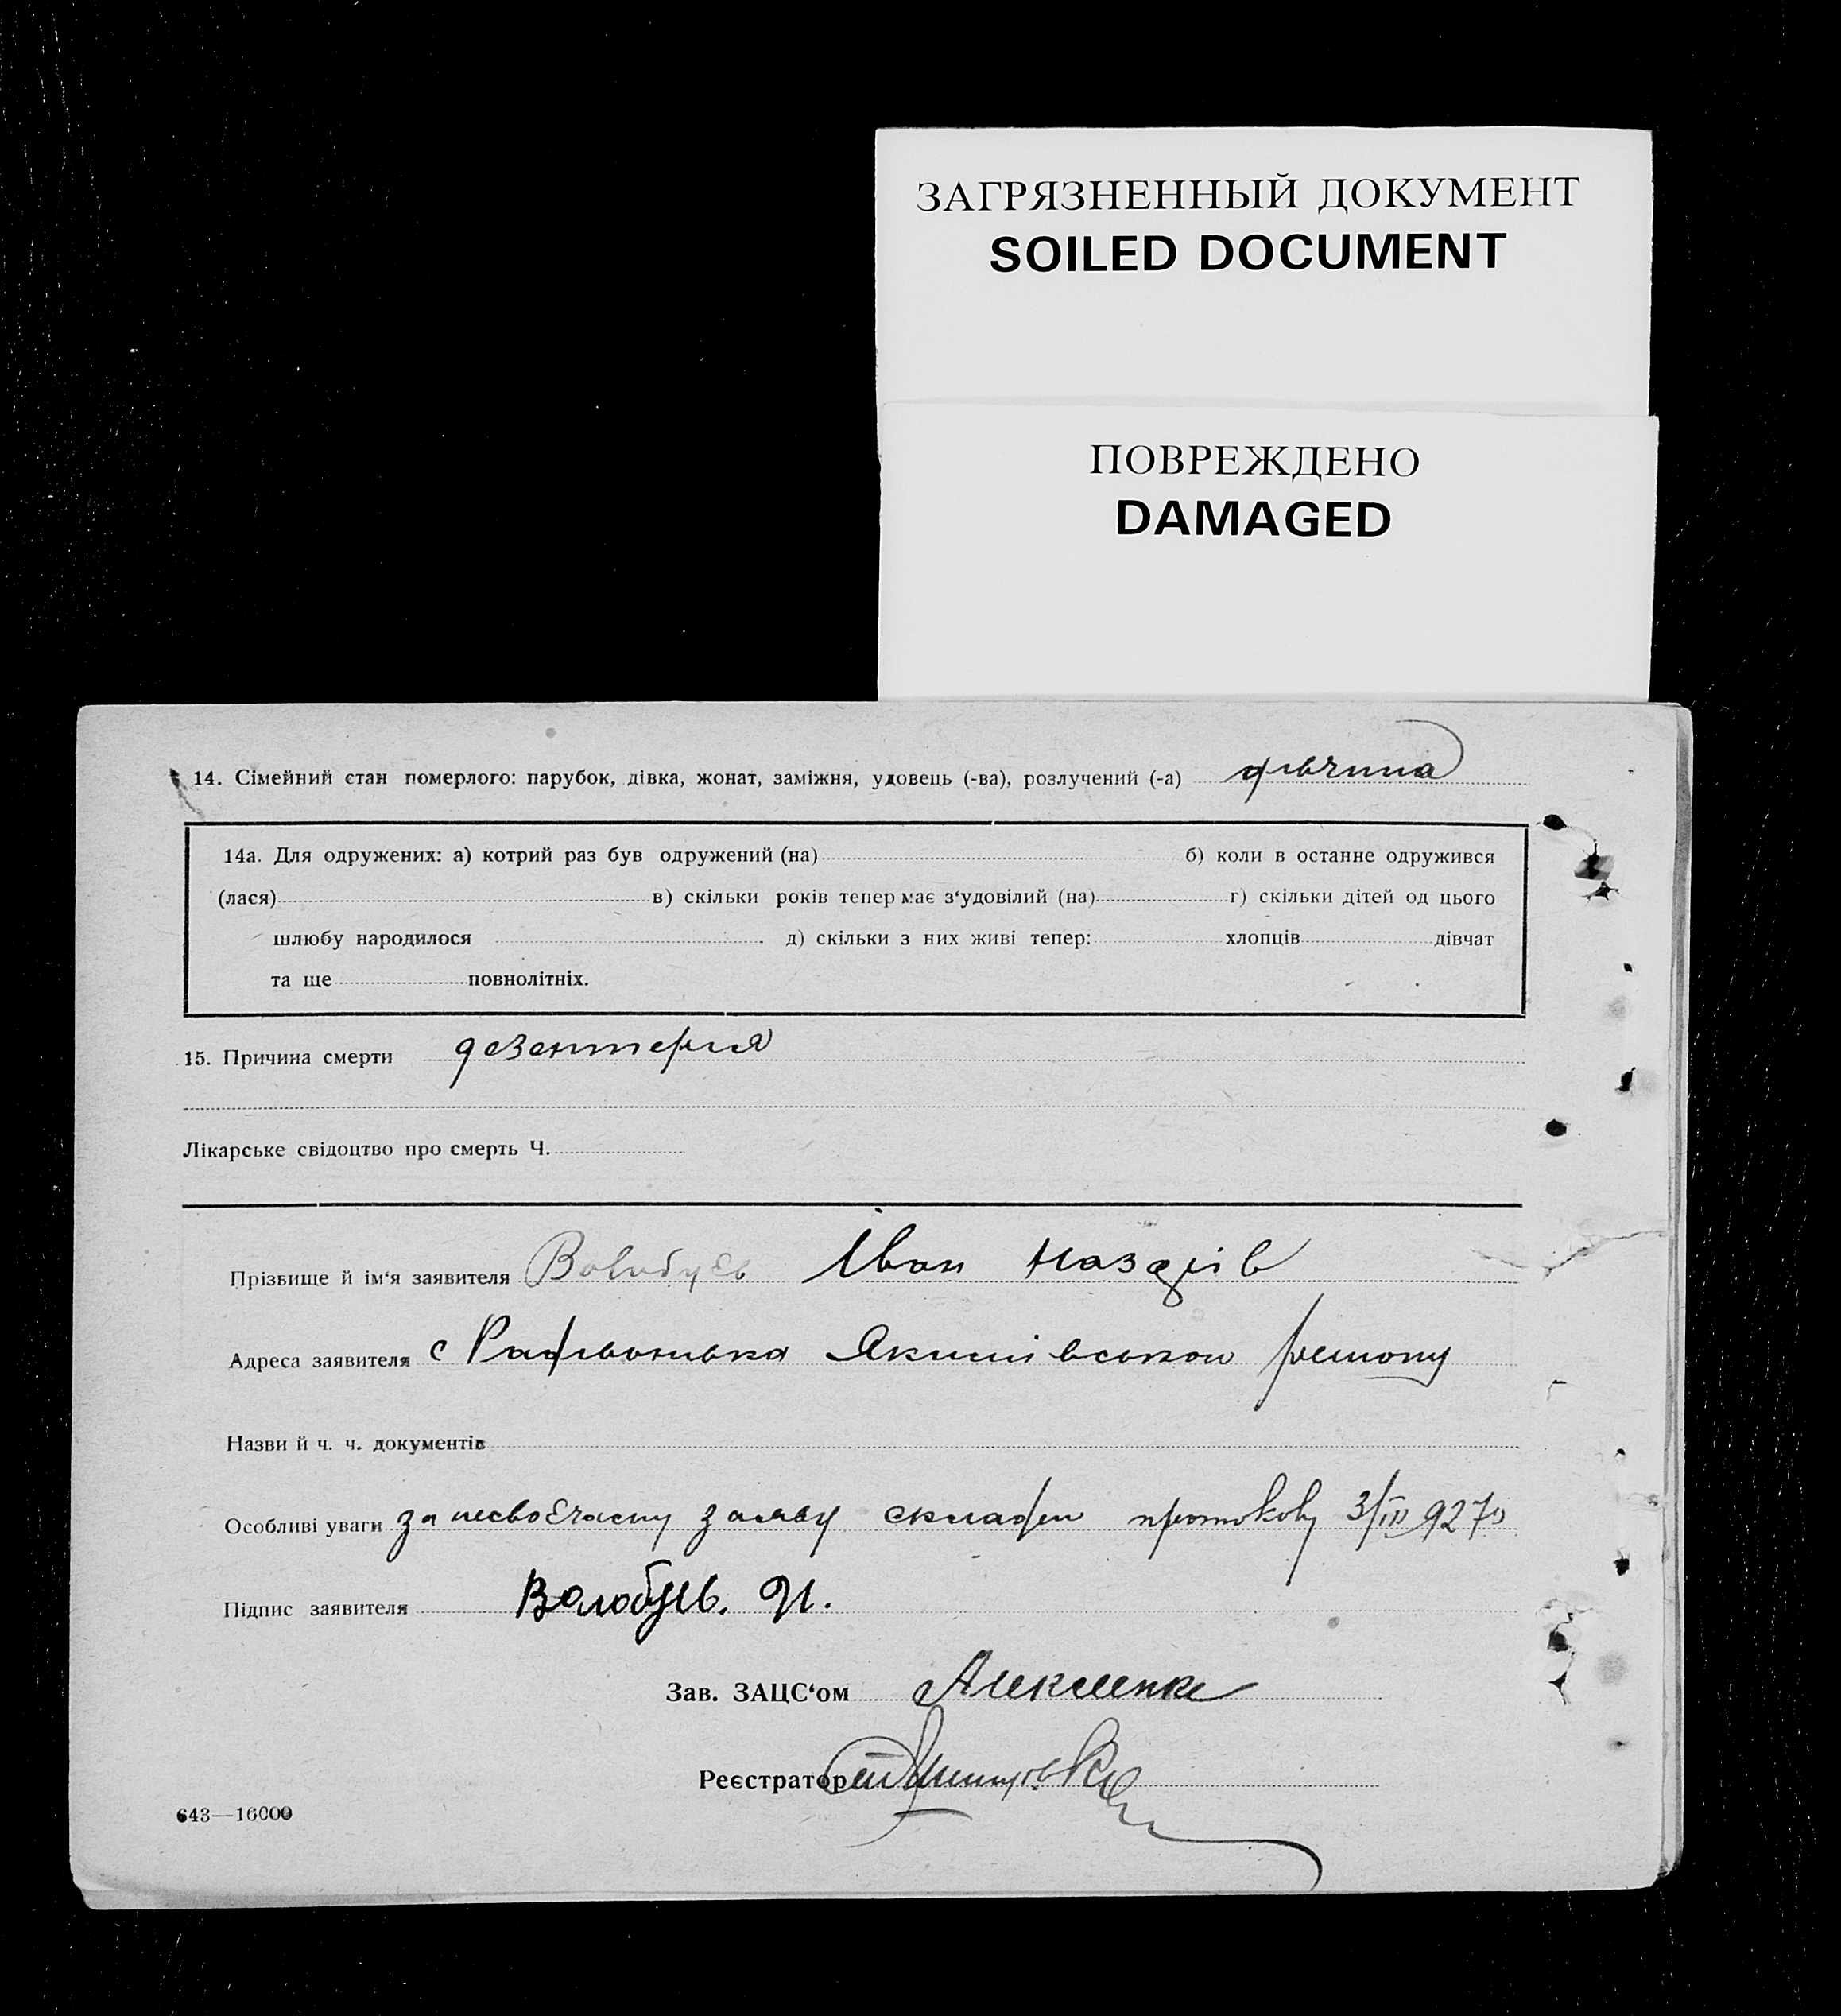 ЗАГРЯЗНЕННЫЙ ДОКУМЕНТ
SOILED DOCUMENT
ПОВРЕЖДЕНО
DAMAGED
14. Сімейний стан померлого: парубок, дівка, жонат, заміжня, удовець (-ва), розлучений (-а) дівчина
14а. Для одружених: а) котрий раз був одружений (на) б) коли в останнє одружився
(лася) в) скільки років тепер має з‘удовілий (на) г) скільки дітей од цього
шлюбу народилося д) скільки з них живі тепер: хлопців дівчат
та ще повнолітніх.
15. Причина смерти дезентерія
Лікарське свідоцтво про смерть Ч.
Прізвище й ім‘я заявителя Волобуєв Іван
Адреса заявителя с Якимівського району
Назви й ч. ч. документів
Особливі уваги за несвоєчасну заяву складен протокол 3/III 927
Підпис заявителя Волобуєв. И.
Зав. ЗАЦС‘ом Алексеенко
Реєстратор
643—16000